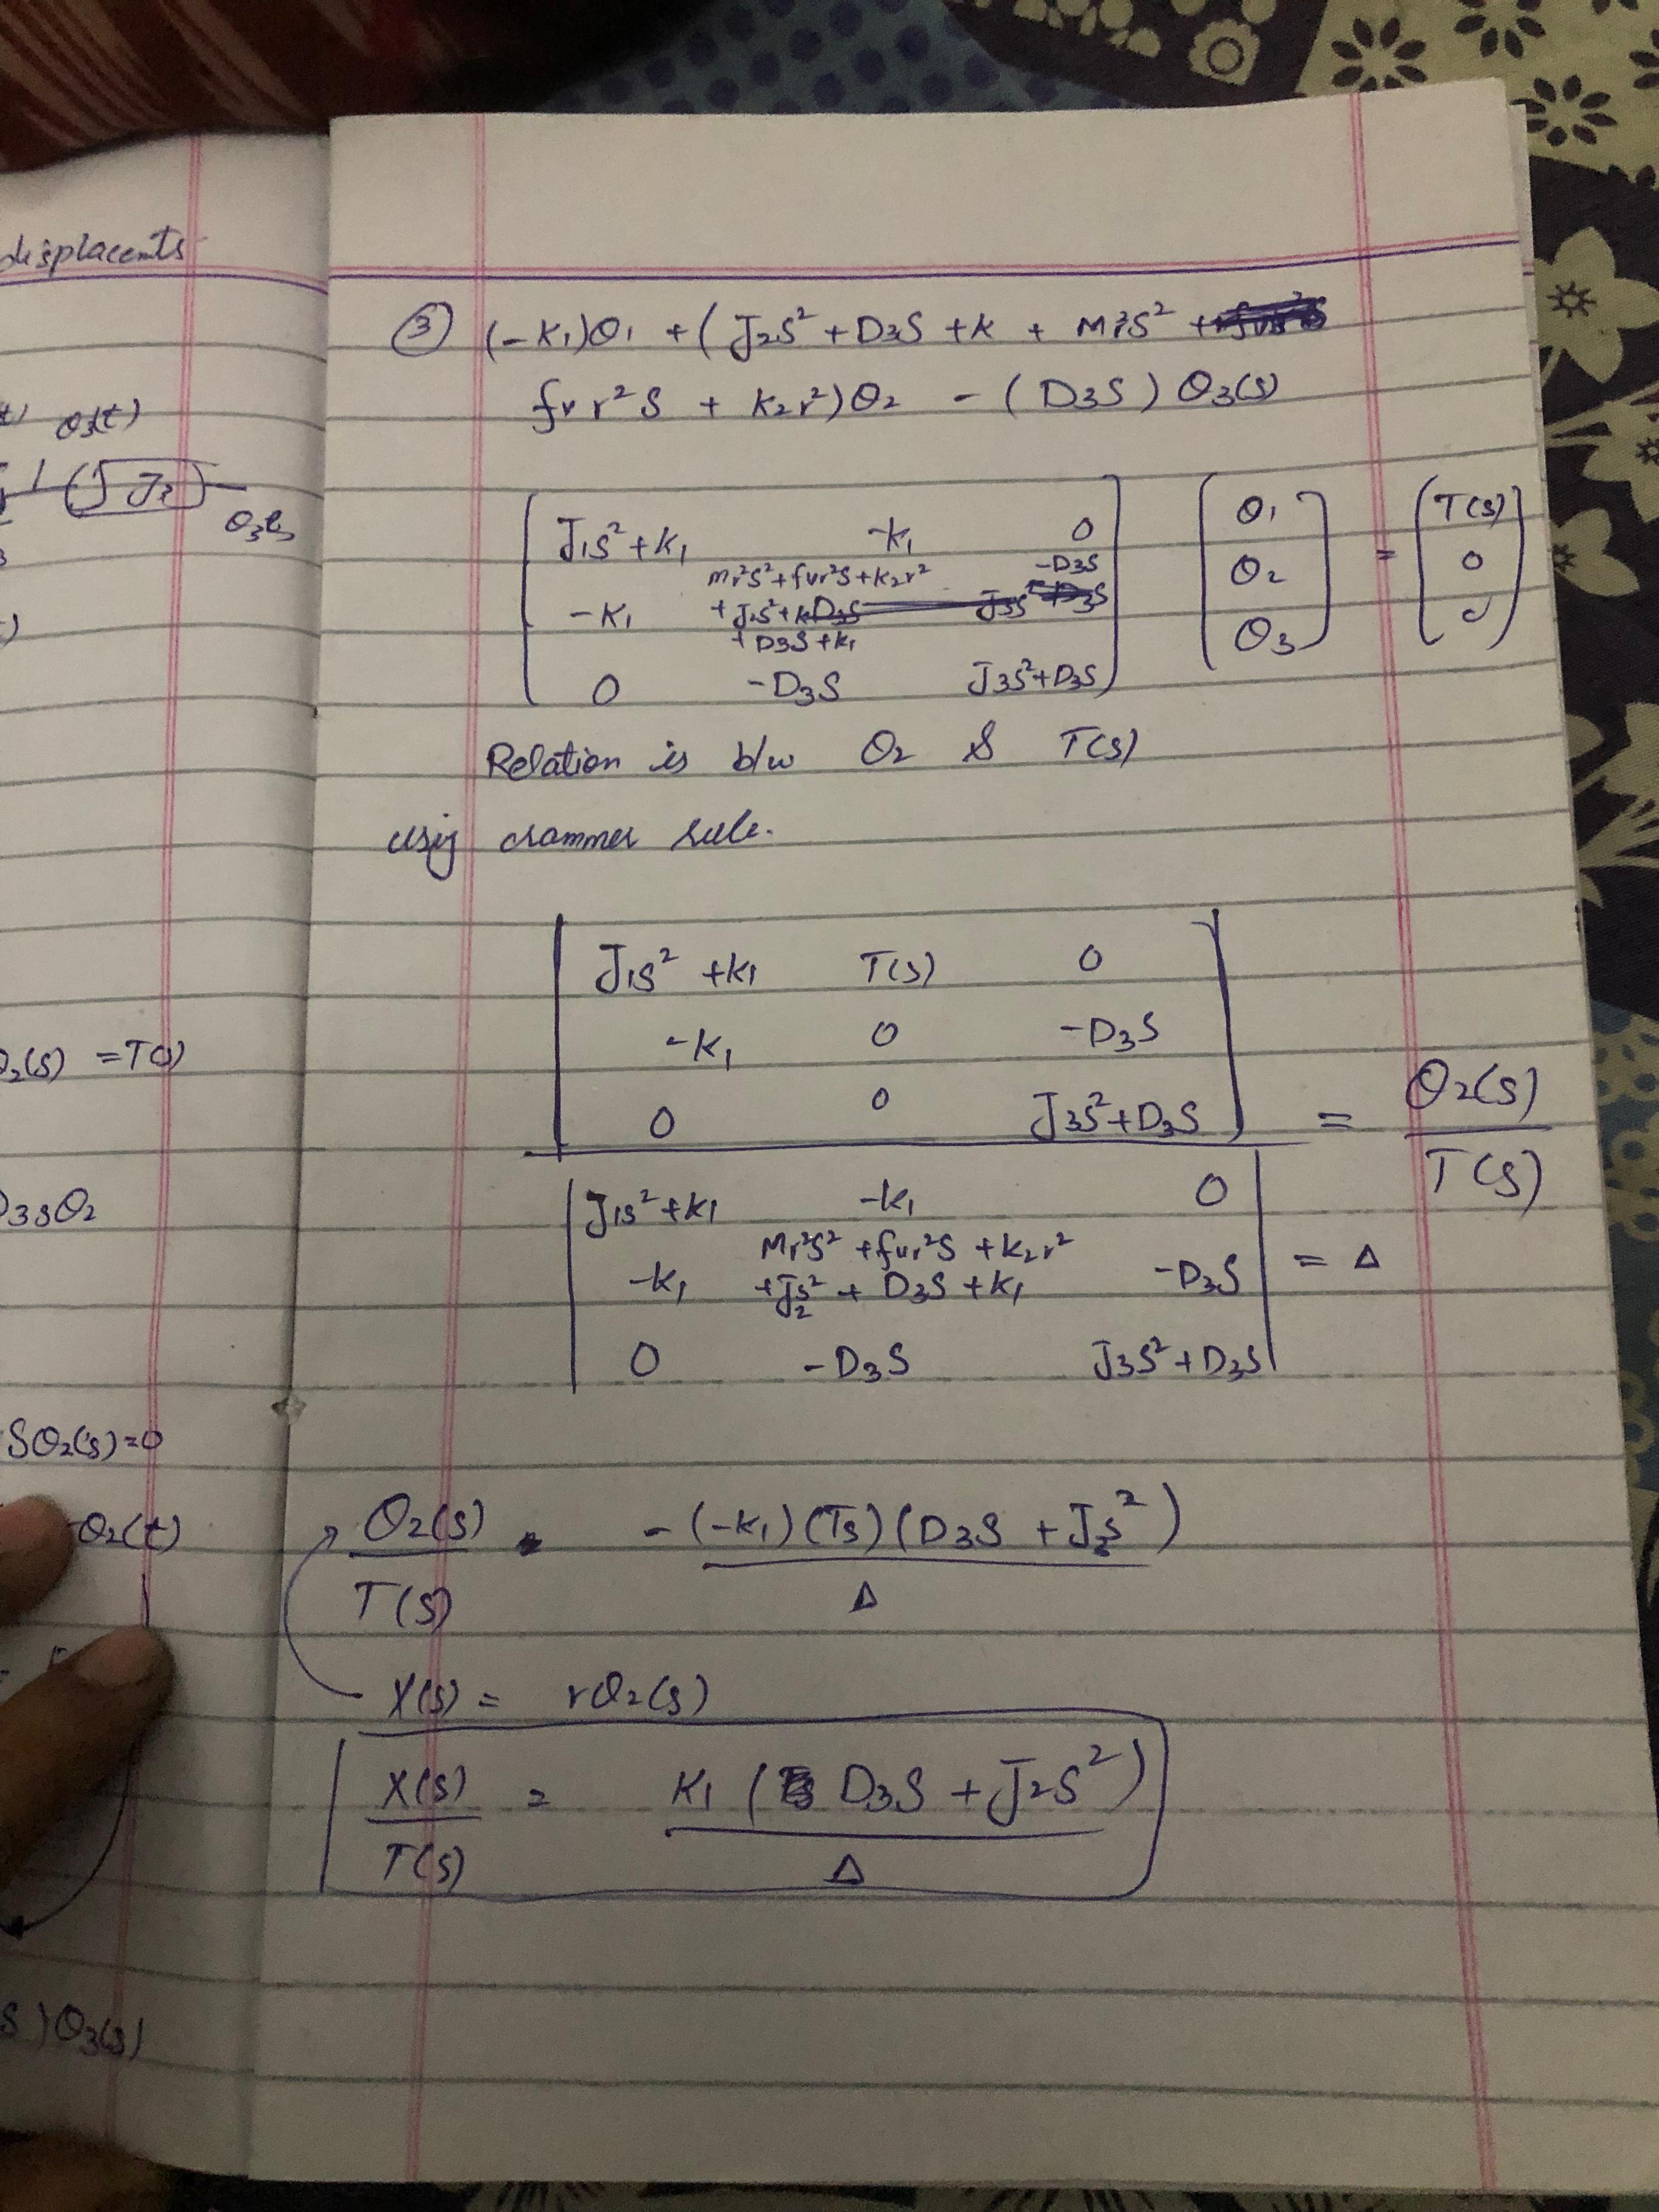 displacents
θ3(t)
J3
θ3(s)
θ2(s) = T(s)
D3sθ2
Sθ2(s)=0
θ2(t)
S)θ3(s)
③ (-K1)θ1 + (J2S² + D3S + K + Mr²S² +
fvr²S + K2r²)θ2 - (D3S)θ3(s)
J1S²+K1 -K1 0 θ1 T(s)
Mr²S²+fvr²S+K2r² -D3S
-K1 +J2S²+K θ2 = 0
+D3S+K1
0 -D3S J3S²+D3S θ3 0
Relation is b/w θ2 & T(s)
using crammer rule.
J1S² +K1 T(s) 0
-K1 0 -D3S
0 0 J3S²+D3S = θ2(s)
T(s)
J1S²+K1 -K1 0
Mr²S² +fvr²S +K2r²
-K1 +J2S² + D3S +K1 -D3S = Δ
0 -D3S J3S²+D3S
θ2(s) = -(-K1)(Ts)(D3S + J3S²)
T(s) Δ
X(s) = rθ2(s)
X(s) = K1 (D3S + J2S²)
T(s) Δ